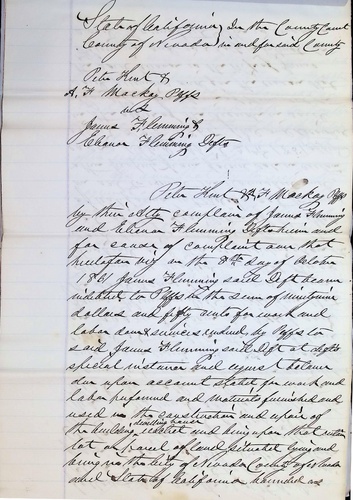 State of California, In the County Court
County of Nevada in and for said County
Peter Hunt &
A. F. Mackay Plffs
vs
James Flemming &
Eleanor Flemming Defts
Peter Hunt & A. F. Mackay Plffs
by their atty complain of James Flemming
and Eleanor Flemming Defts herein and
for cause of complaint aver that
heretofore viz on the 8th day of October
1861 James Flemming said Deft became
indebted to Plffs in the sum of nineteen
dollars and fifty cents for work and
labor done & services rendered by Plffs to
said James Flemming said Deft at defts
special instance and request balance
due upon account stated for work and
labor performed and materials furnished and
used in the construction and repair of
the building dwelling house erected and being upon that certain
lot or parcel of land situated lying and
being in the City of Nevada County of Nevada
and State of California bounded as